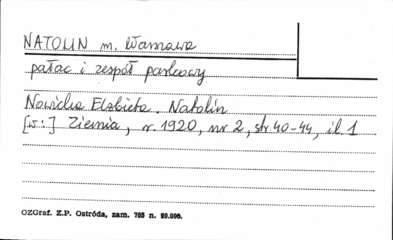 NATOLIN m. Warszawa
pałac i zespół parkowy
Nowicka Elżbieta. Natolin
[w:] Ziemia, r. 1920, nr 2, str. 40-44, il. 1
OZGraf. Z.P. Ostróda, zam. 705 n. 20.000.